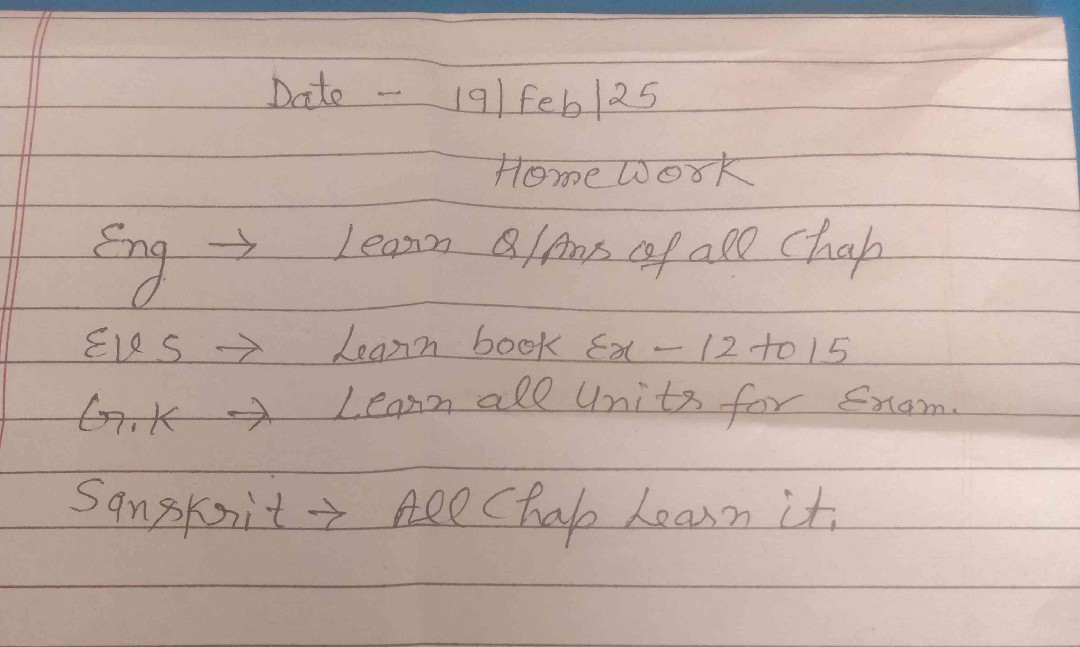 Date - 19|Feb|25
Home Work
Eng → Learn Q/Ans of all Chap
EVS → Learn book Ex - 12 to 15
G.K → Learn all Units for Exam.
Sanskrit → All Chap Learn it.